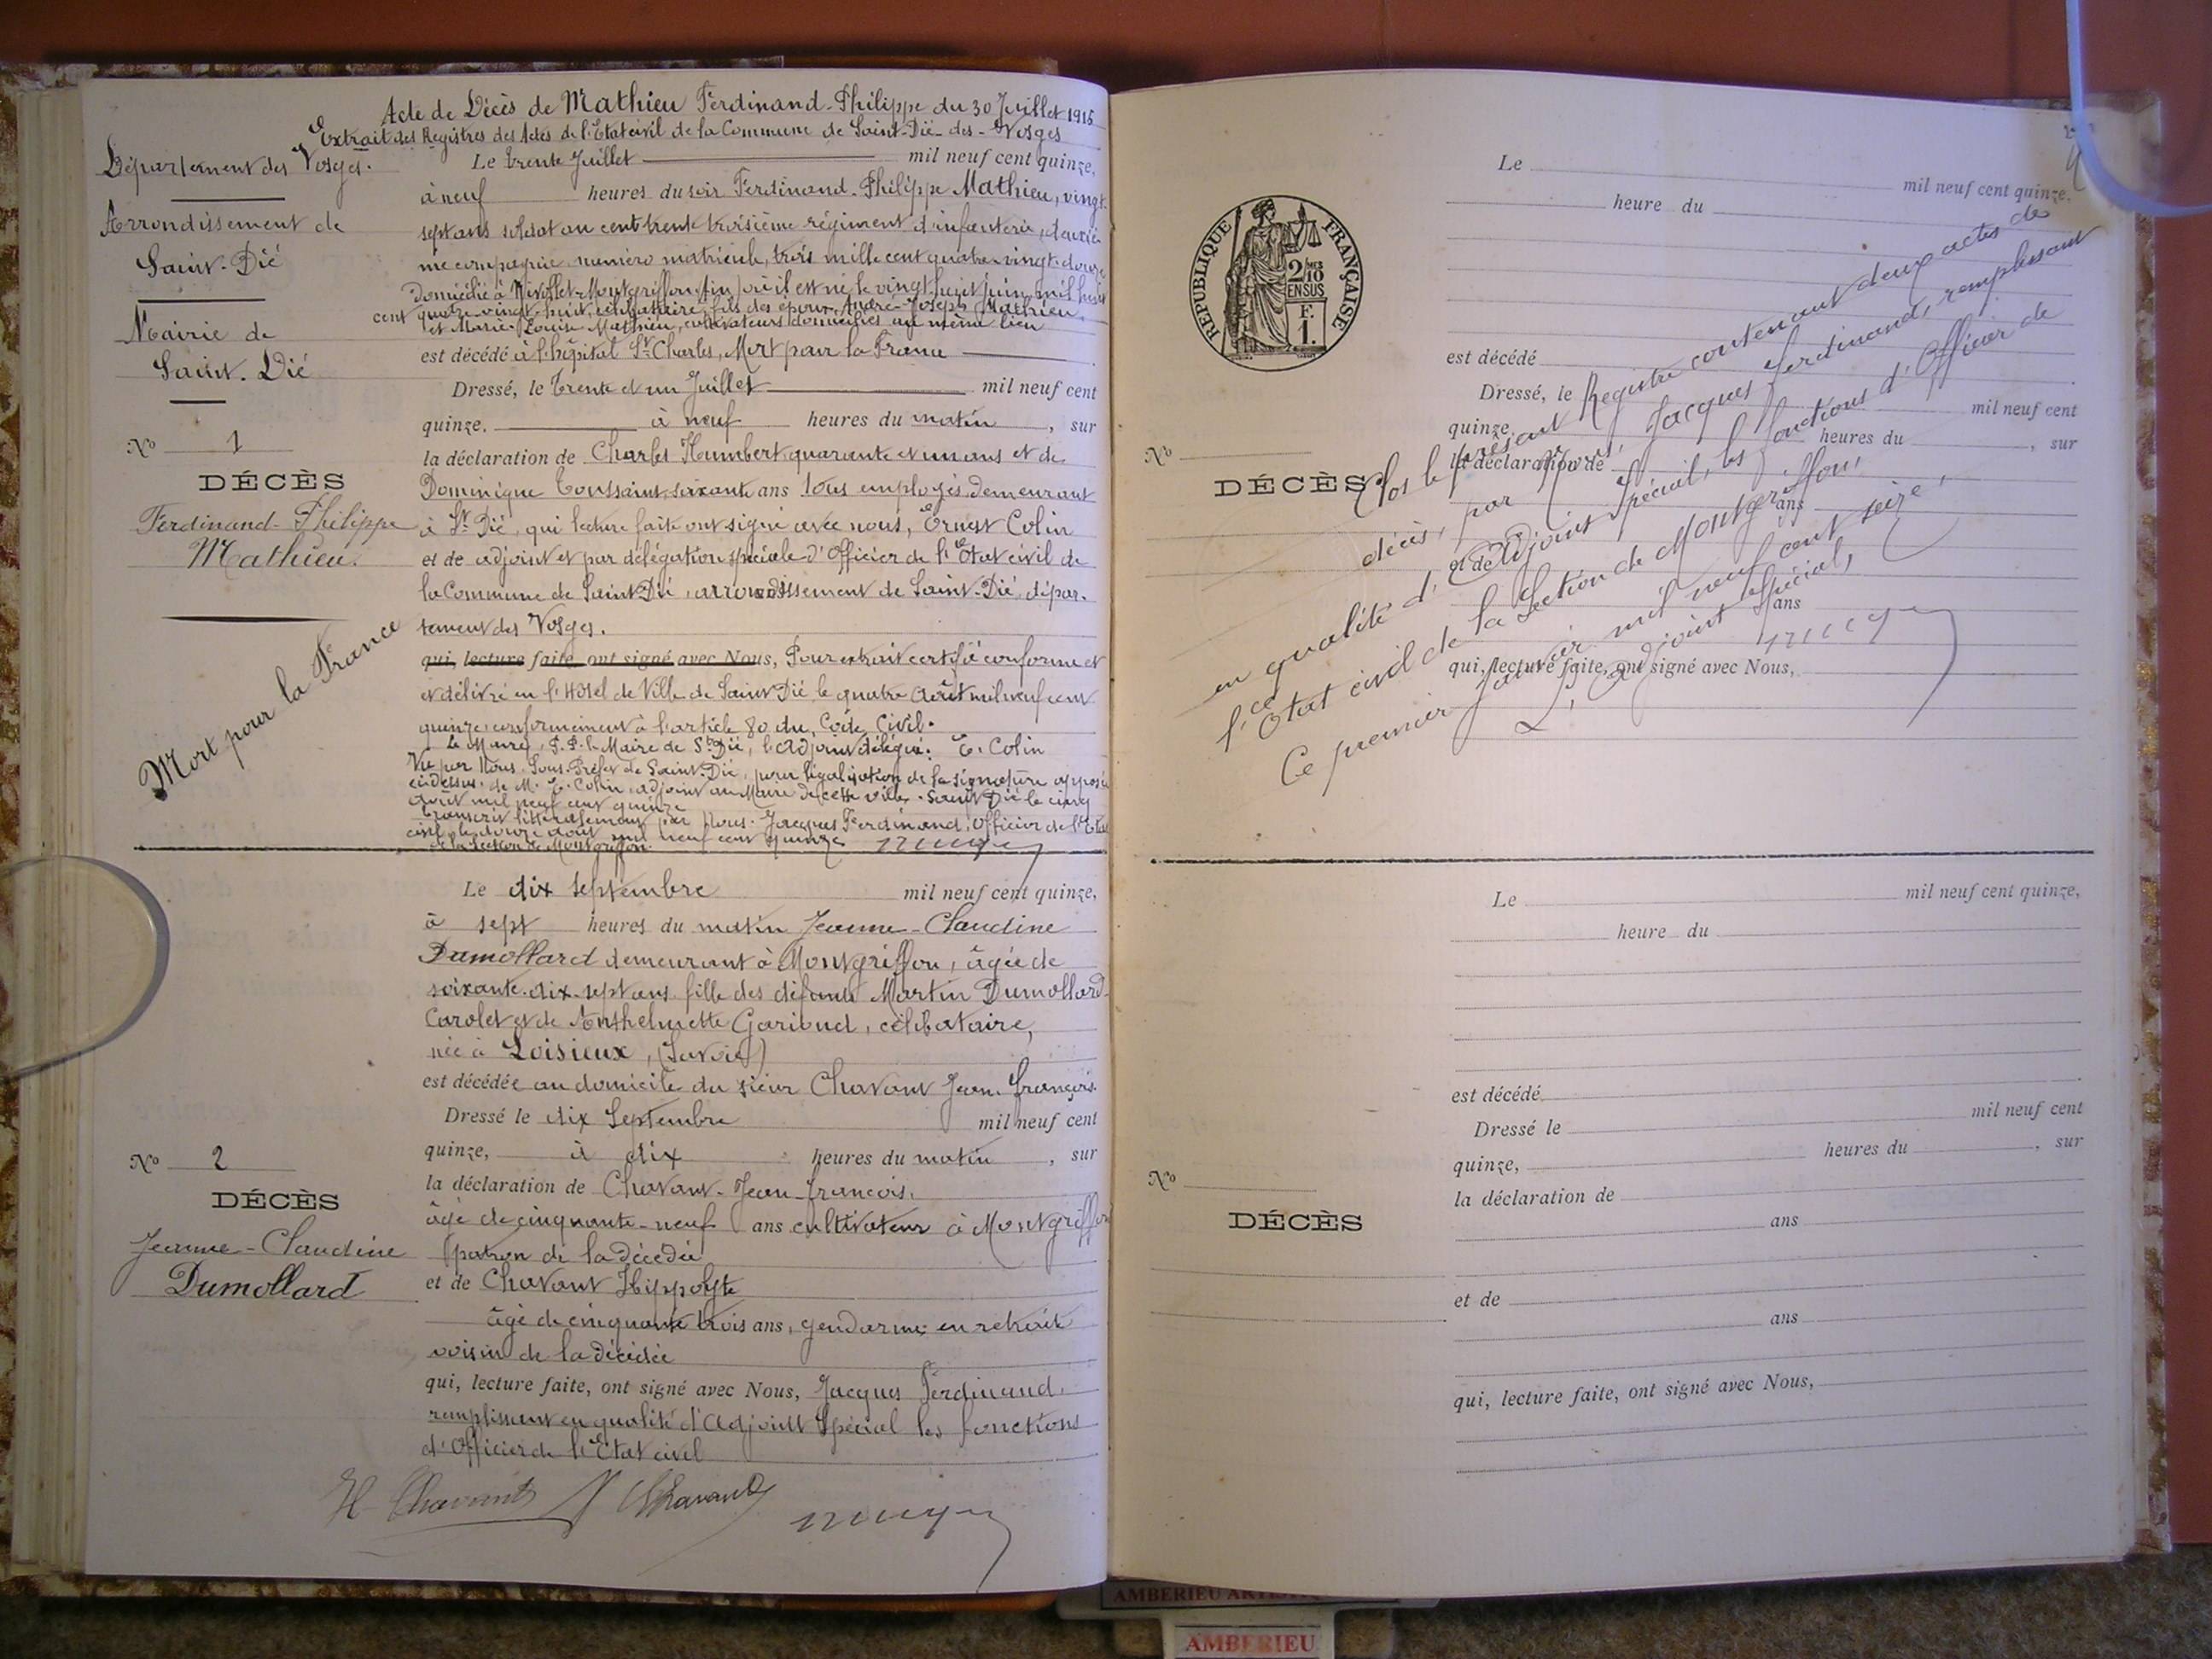 Acte de Décès de Mathieu Ferdinand-Philippe du 30 Juillet 1915
Extrait des Registres des Actes de l'Etat civil de la Commune de Saint-Dié-des-Vosges
Département des Vosges.
Arrondissement de
Saint-Dié
Mairie de
Saint-Dié
No 1
DÉCÈS
Ferdinand-Philippe
Mathieu.
Mort pour la France
Le trente Juillet mil neuf cent quinze,
à neuf heures du soir Ferdinand-Philippe Mathieu, vingt-
sept ans soldat au cent trente troisième régiment d'infanterie, deuxiè
me compagnie, numéro matricule, trois mille cent quatre-vingt-douze
domicilié à Nivollet-Montgriffon (Ain) où il est né le vingt-huit juin mil huit
cent quatre-vingt-huit, célibataire, fils des époux André-Joseph Mathieu
et Marie-Louise Mathieu, cultivateurs domiciliés au même lieu
est décédé à l'hôpital St Charles, Mort pour la France
Dressé, le trente et un Juillet mil neuf cent
quinze. à neuf heures du matin, sur
la déclaration de Charles Humbert quarante et un ans et de
Dominique Toussaint, soixante ans tous employés demeurant
à St Dié, qui lecture faite ont signé avec nous, Ernest Colin
et de adjoint et par délégation spéciale d'Officier de l'Etat civil de
la Commune de Saint Dié, arrondissement de Saint-Dié, dépar-
tement des Vosges.
qui, lecture faite, ont signé avec Nous, Pour extrait certifié conforme et
et délivré en l'Hôtel de Ville de Saint Dié le quatre Août mil neuf cent
quinze, conformément à l'article 80 du Code Civil.
Le Maire, P. le Maire de St Dié, l'adjoint délégué: E. Colin
Vu par Nous, Sous-Préfet de Saint-Dié, pour légalisation de la signature apposée
ci-dessus de M. E. Colin, adjoint au Maire de cette ville. Saint Dié le cinq
Août mil neuf cent quinze
Transcrit littéralement par Nous Jacques Ferdinand, Officier de l'Etat
civil le douze août mil neuf cent quinze
de la Section de Montgriffon.
No 2
DÉCÈS
Jeanne-Claudine
Dumollard
Le dix septembre mil neuf cent quinze,
à sept heures du matin Jeanne-Claudine
Dumollard demeurant à Montgriffon, âgée de
soixante-dix-sept ans fille des défunts Martin Dumollard-
Carolet et de Anthelmette Garioud, célibataire,
née à Loisieux, (Savoie)
est décédée au domicile du sieur Chavant Jean-François.
Dressé le dix Septembre mil neuf cent
quinze, à dix heures du matin, sur
la déclaration de Chavant-Jean-François,
âgé de cinquante-neuf ans cultivateur à Montgriffon
(patron de la décédée
et de Chavant Hippolyte
âgé de cinquante trois ans, gendarme en retraite
voisin de la décédée
qui, lecture faite, ont signé avec Nous, Jacques Ferdinand,
remplissant en qualité d'Adjoint Spécial les fonctions
d'Officier de l'Etat civil
H Chavant Chavant
RÉPUBLIQUE FRANÇAISE
2/10 EN SUS
F. 1.
Le mil neuf cent quinze,
heure du
est décédé
Dressé, le mil neuf cent
quinze, heures du , sur
la déclaration de
ans
et de
ans
qui, lecture faite, ont signé avec Nous,
No
DÉCÈS
Clos le présent Registre contenant deux actes de
décès, par Nous, Jacques Ferdinand, remplissant
en qualité d'Adjoint Spécial, les fonctions d'Officier de
l'Etat civil de la Section de Montgriffon,
Ce premier Janvier mil neuf cent seize,
L'Adjoint Spécial,
Le mil neuf cent quinze,
heure du
est décédé
Dressé le mil neuf cent
quinze, heures du , sur
la déclaration de
ans
et de
ans
qui, lecture faite, ont signé avec Nous,
No
DÉCÈS
AMBERIEU
AMBERIEU